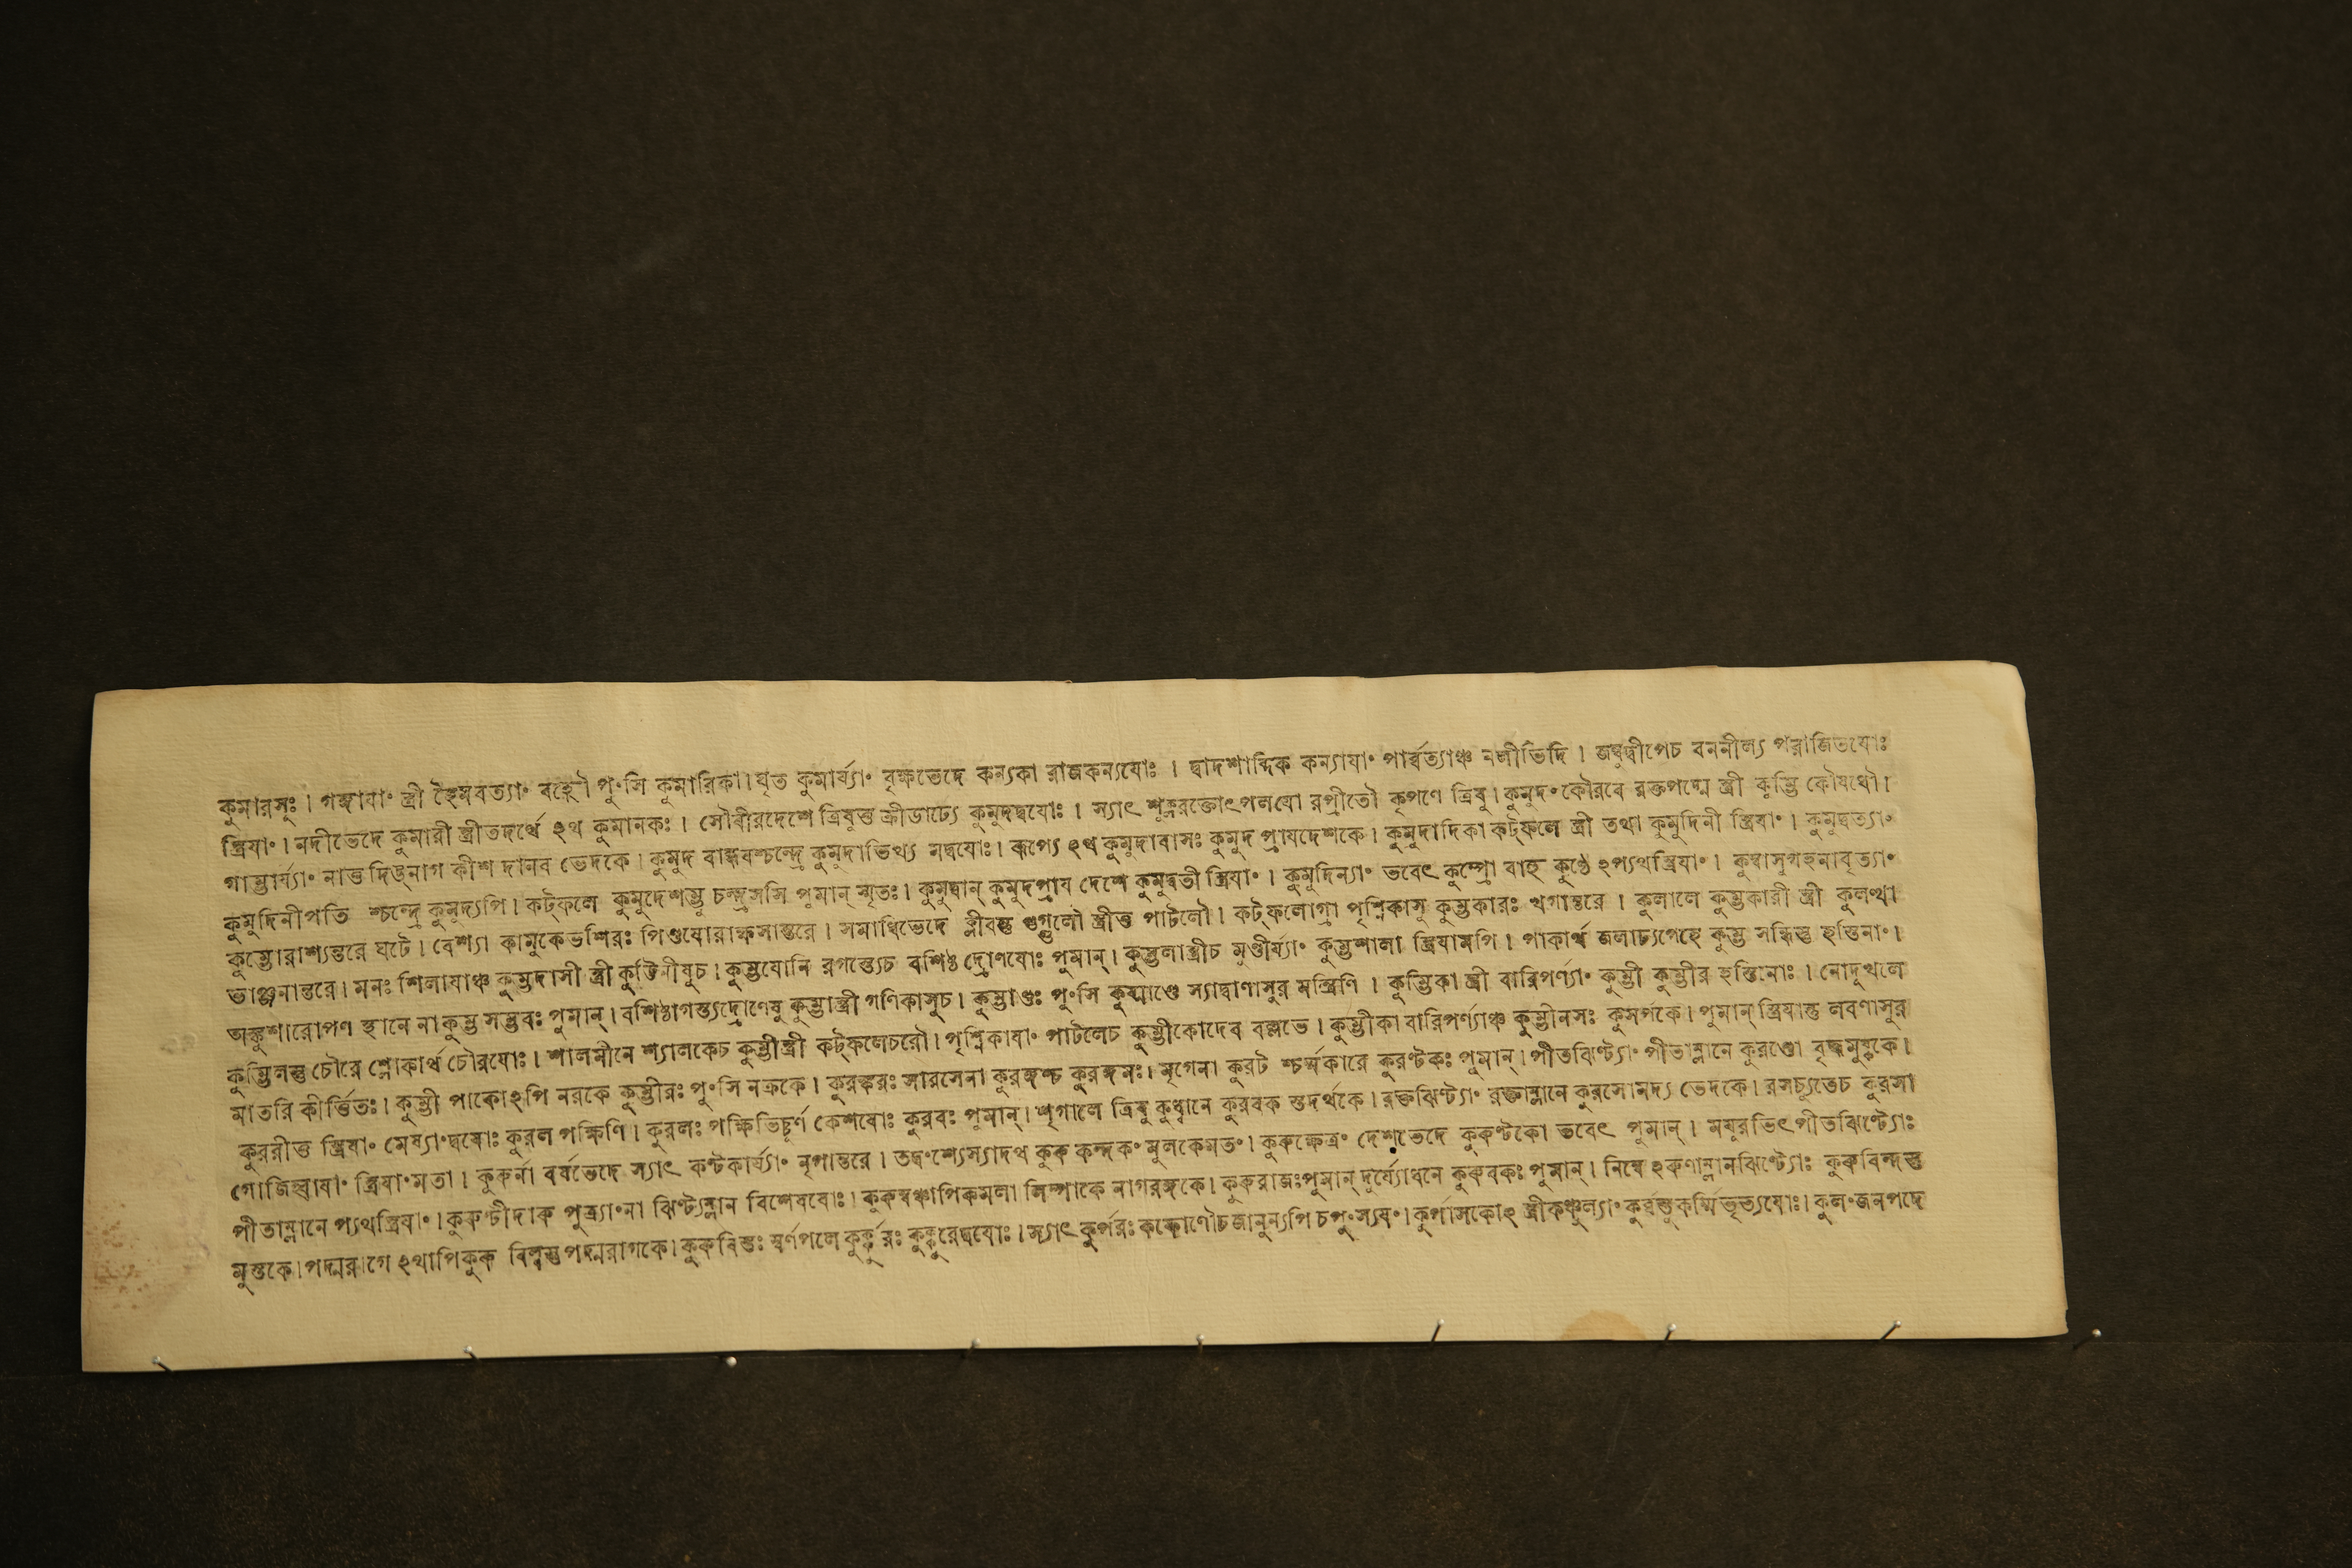 কুমারসুঃ । গঙ্গাযাং স্ত্রী হৈমবত্যাং বহ্ণৌ পুংসি কুমারিকা। ঘৃত কুমার্য্যাং বৃক্ষভেদে কন্যকা রাজকন্যযোঃ । দ্বাদশাব্দিক কন্যাযাং পার্ব্বত্যাঞ্চ নলীভিদি । জম্বুদ্বীপেচ বননীল্য পরাজিতযোঃ
স্ত্রিযাং । নদীভেদে কুমারী স্ত্রীতদর্থে ঽথ কুমানকঃ । সৌবীরদেশে ত্রিষুত্ত ক্রীডাঢ্যে কুমুদদ্বযোঃ । স্যাৎ শুভ্ররক্তোৎপলযো রপ্রীতৌ কৃপণে ত্রিষু। কুমুদং কৌরবে রক্তপদ্মে স্ত্রী কুম্ভি কৌষধৌ।
গাম্ভার্য্যাং নাত্ত দিঙ্নাগ কীশ দানব ভেদকে । কুমুদ বান্ধবশ্চন্দ্রে কুমুদাভিখ্য মদ্বযোঃ। রূপ্যে ঽথ কুমুদাবাসঃ কুমুদ প্রাযদেশকে। কুমুদাদিকা কট্ফলে স্ত্রী তথা কুমুদিনী স্ত্রিযাং । কুমুদ্বত্যাং
কুমুদিনীপতি শ্চন্দ্রে কুমুদ্যপি। কট্ফলে কুমুদেশম্ভু চন্দ্রসসি পুমান্ স্মৃতঃ। কুমুদ্বান্ কুমুদপ্রায দেশে কুমুদ্বতী স্ত্রিযাং । কুমুদিন্যাং ভবেৎ কুম্প্রো বাহু কুণ্ঠে ঽপ্যথস্ত্রিযাং । কুম্বাসুগহনাবৃত্যাং
কুম্ভোরাশ্যন্তরে ঘটে। বেশ্যা কামুকেভশিরঃ পিণ্ডযোরাক্ষসান্তরে । সমাধিভেদে ক্লীবন্তু গুগ্গুলৌ স্ত্রীত্ত পাটলৌ। কট্ফলোগ্রা পৃশ্নিকাসু কুম্ভকারঃ খগান্তরে । কুলালে কুম্ভকারী স্ত্রী কুলত্থা
ভাঞ্জনান্তরে। মনঃ শিলাযাঞ্চ কুম্ভদাসী স্ত্রী কুট্টিনীষুচ। কুম্ভযোনি রগস্ত্যেচ বশিষ্ঠ দ্রোণযোঃ পুমান্। কুম্ভলাস্ত্রীচ মুণ্ডীর্য্যাং কুম্ভশালা স্ত্রিযামপি। পাকার্থ জলাঢ্যগেহে কুম্ভ সন্ধিস্তু হস্তিনাং।
অঙ্কুশারোপণ স্থানে নাকুম্ভ সম্ভবঃ পুমান্। বশিষ্ঠাগস্ত্যদ্রোণেষু কুম্ভাস্ত্রী গণিকাসুচ। কুম্ভাণ্ডঃ পুংসি কুষ্মাণ্ডে স্যাদ্বাণাসুর মন্ত্রিণি । কুম্ভিকা স্ত্রী বারিপর্ণ্যাং কুম্ভী কুম্ভীর হস্তিনোঃ । নোদূখলে
কুম্ভিলস্তু চৌরে শ্লোকার্থ চৌরযোঃ। শালমীনে শ্যালকেচ কুম্ভীস্ত্রী কট্ফলেচরৌ। পৃশ্নিকাযাং পাটলেচ কুম্ভীকোদেব বল্লভে । কুম্ভীকা বারিপর্ণ্যাঞ্চ কুম্ভীনসঃ কুসর্পকে। পুমান্ স্ত্রিযান্তু লবণাসুর
মাতরি কীর্ত্তিতঃ। কুম্ভী পাকোঽপি নরকে কুম্ভীরঃ পুংসি নক্রকে । কুরঙ্করঃ সারসেনা কুরঙ্গশ্চ কুরঙ্গমঃ। মৃগেনা কুরট শ্চর্ম্মকারে কুরণ্টকঃ পুমান্। পীতঝিণ্ট্যাং পীতাম্লানে কুরণ্ডো বৃদ্ধমুষ্ককে।
কুররীত্ত স্ত্রিযাং মেষ্যাংদ্বযোঃ কুরল পক্ষিণি। কুরলঃ পক্ষিভিচ্চূর্ণ কেশযোঃ কুরবঃ পুমান্। শৃগালে ত্রিষু কুধ্বানে কুরবক স্তদর্থকে। রক্তঝিণ্ট্যাং রক্তাম্লানে কুরসোমদ্য ভেদকে। রসচ্যুতেচ কুরসা
গোজিহ্বাযাং স্ত্রিযাংমতা। কুরুর্না বর্ষভেদে স্যাৎ কণ্টকার্য্যাং নৃপান্তরে । তদ্বংশ্যেস্যাদথ কুরু কন্দকং মুলকেমতং। কুরুক্ষেত্রং দেশভেদে কুরুণ্টকো ভবেৎ পুমান্। মযুরভিৎ পীতঝিণ্ট্যোঃ
পীতাম্লানে প্যথস্ত্রিযাং। কুরুণ্টীদারু পুত্র্যাংনা ঝিণ্ট্যম্লান বিশেষযোঃ। কুরুম্বঞ্চাপিকমলা লিম্পাকে নাগরঙ্গকে। কুরুরাজঃপুমান্ দুর্য্যোধনে কুরুবকঃ পুমান্। নিম্বে ঽরুণাম্লানঝিণ্ট্যোঃ কুরুবিন্দস্তু
মুস্তকে। পদ্মরাগে ঽথাপিকুরু বিল্বস্তু পদ্মরাগকে। কুরুবিস্তঃ স্বর্ণপলে কুর্কুরঃ কুক্কুরেদ্বযোঃ। স্যাৎ কুর্পরঃ কফোণৌচ জানুন্যপি চপুংস্যযং। কুর্পাসকোঽ স্ত্রীকঞ্চুল্যাং কুর্ব্বন্তুকর্ম্মিভৃত্যযোঃ। কুলংজনপদে